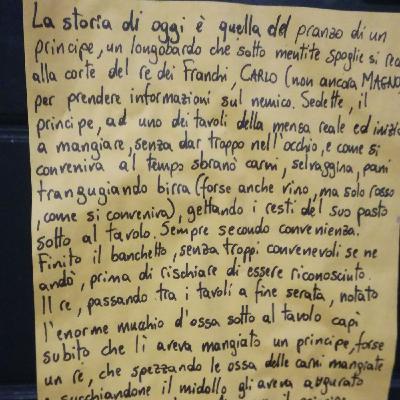 La storia di oggi è quella del pranzo di un
principe, un longobardo che sotto mentite spoglie si recò
alla corte del re dei Franchi, CARLO (non ancora MAGNO
per prendere informazioni sul nemico. Sedette, il
principe, ad uno dei tavoli della mensa reale ed iniziò
a mangiare, senza dar troppo nell'occhio, e come si
conveniva al tempo sbranò carni, selvaggina, pani
trangugiando birra (forse anche vino, ma solo rosso
, come si conveniva), gettando i resti del suo pasto
sotto al tavolo. Sempre secondo convenienza.
Finito il banchetto, senza troppi convenevoli se ne
andò, prima di rischiare di essere riconosciuto.
Il re, passando tra i tavoli a fine serata, notato
l'enorme mucchio d'ossa sotto al tavolo capì
subito che lì aveva mangiato un principe, forse
un re, che spezzando le ossa delle carni mangiate
e succhiandone il midollo gli aveva